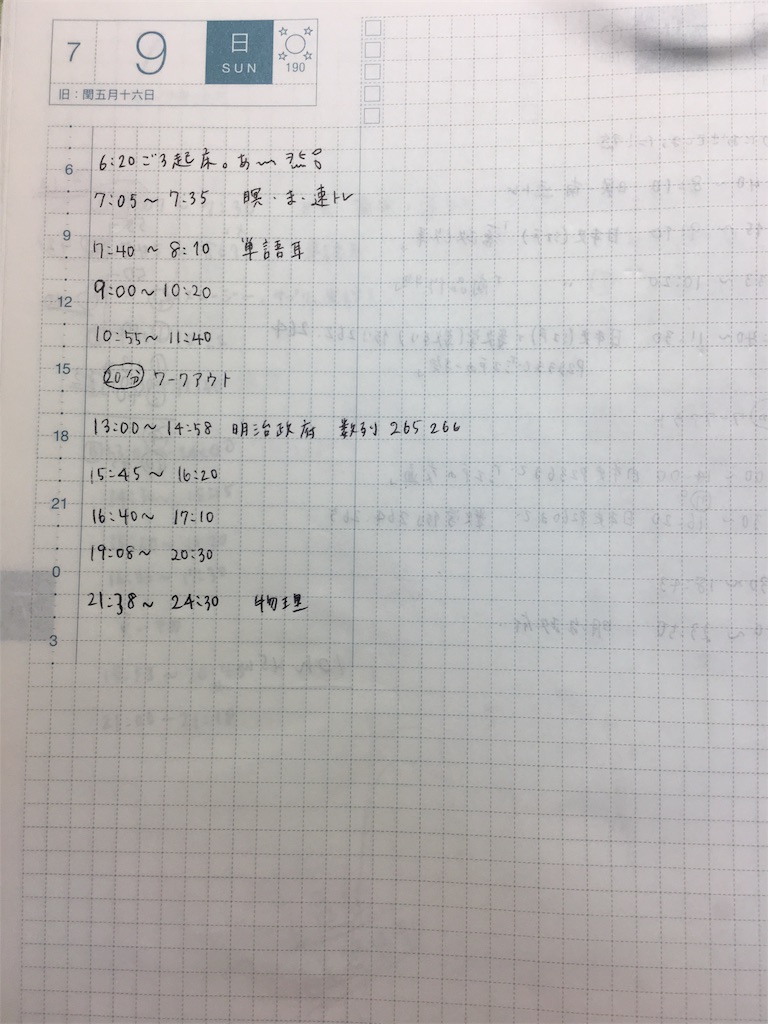 7 9 日 SUN 190
旧：閏五月十六日
6:20ごろ起床。あ〜
7:05〜7:35 瞑・ま・速トレ
7:40〜8:10 単語耳
9:00〜10:20
10:55〜11:40
20分 ワークアウト
13:00〜14:58 明治政府 数列 265 266
15:45〜16:20
16:40〜17:10
19:08〜20:30
21:38〜24:30 物理
6
9
12
15
18
21
0
3